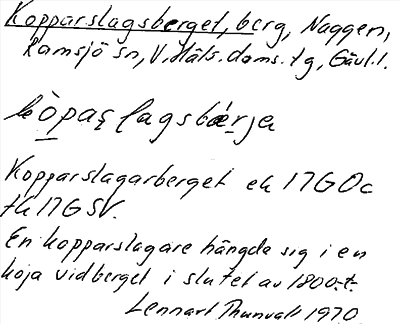 Kopparslagsberget, berg, Naggen,
Ramsjö sn, V. Häls. doms. tg, Gävl. l.
kòpaʂlagsbǽrja
Kopparslagarberget ek 17G Oc
tk 17G SV.
En kopparslagare hängde sig i en
koja vid berget i slutet av 1800-t.
Lennart Thunvall 1970